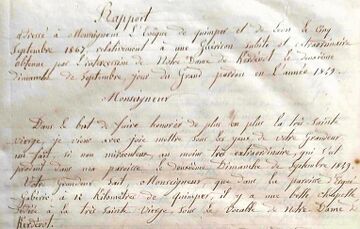 Rapport
adressé à Monseigneur L'Evêque de quimper et de Leon le cinq
Septembre 1867, relativement à une Guérison subite et extraordinaire
obtenue par l'intercession de Notre Dame de Kerdévot, le deuxième
dimanche de Septembre, jour du Grand pardon en L'année 1849.
Monseigneur
Dans le but de faire honorer de plus en plus la très Sainte
Vierge, je viens avec joie mettre sous les yeux de Votre Grandeur
un fait, si non miraculeux au moins très extraordinaire, qui s'est
produit dans ma paroisse, le deuxième Dimanche de Septembre 1849.
Votre Grandeur sait Monseigneur, que dans la paroisse d'Ergué
Gabéric, à 12 Kilomètres de quimper, il y a une belle chapelle
dédiée à la très Sainte Vierge sous le Vocable de Notre Dame de
Kerdévot.